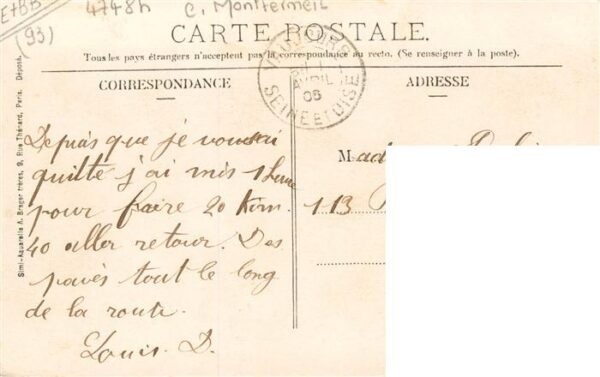 E+BB
4748h
C. Montfermeil
(93)
CARTE POSTALE.
Tous les pays étrangers n'acceptent pas la correspondance au recto. (Se renseigner à la poste).
VAUJOURS
AVRIL
05
SEINE ET OISE
CORRESPONDANCE
ADRESSE
Simi-Aquarelle A. Breger frères, 9, Rue Thénard, Paris. Déposé.
Depuis que je vous ai
quitté j'ai mis 1 heure
pour faire 20 Kim.
40 aller retour. Des
pavés tout le long
de la route.
Louis. D.
Mad
113